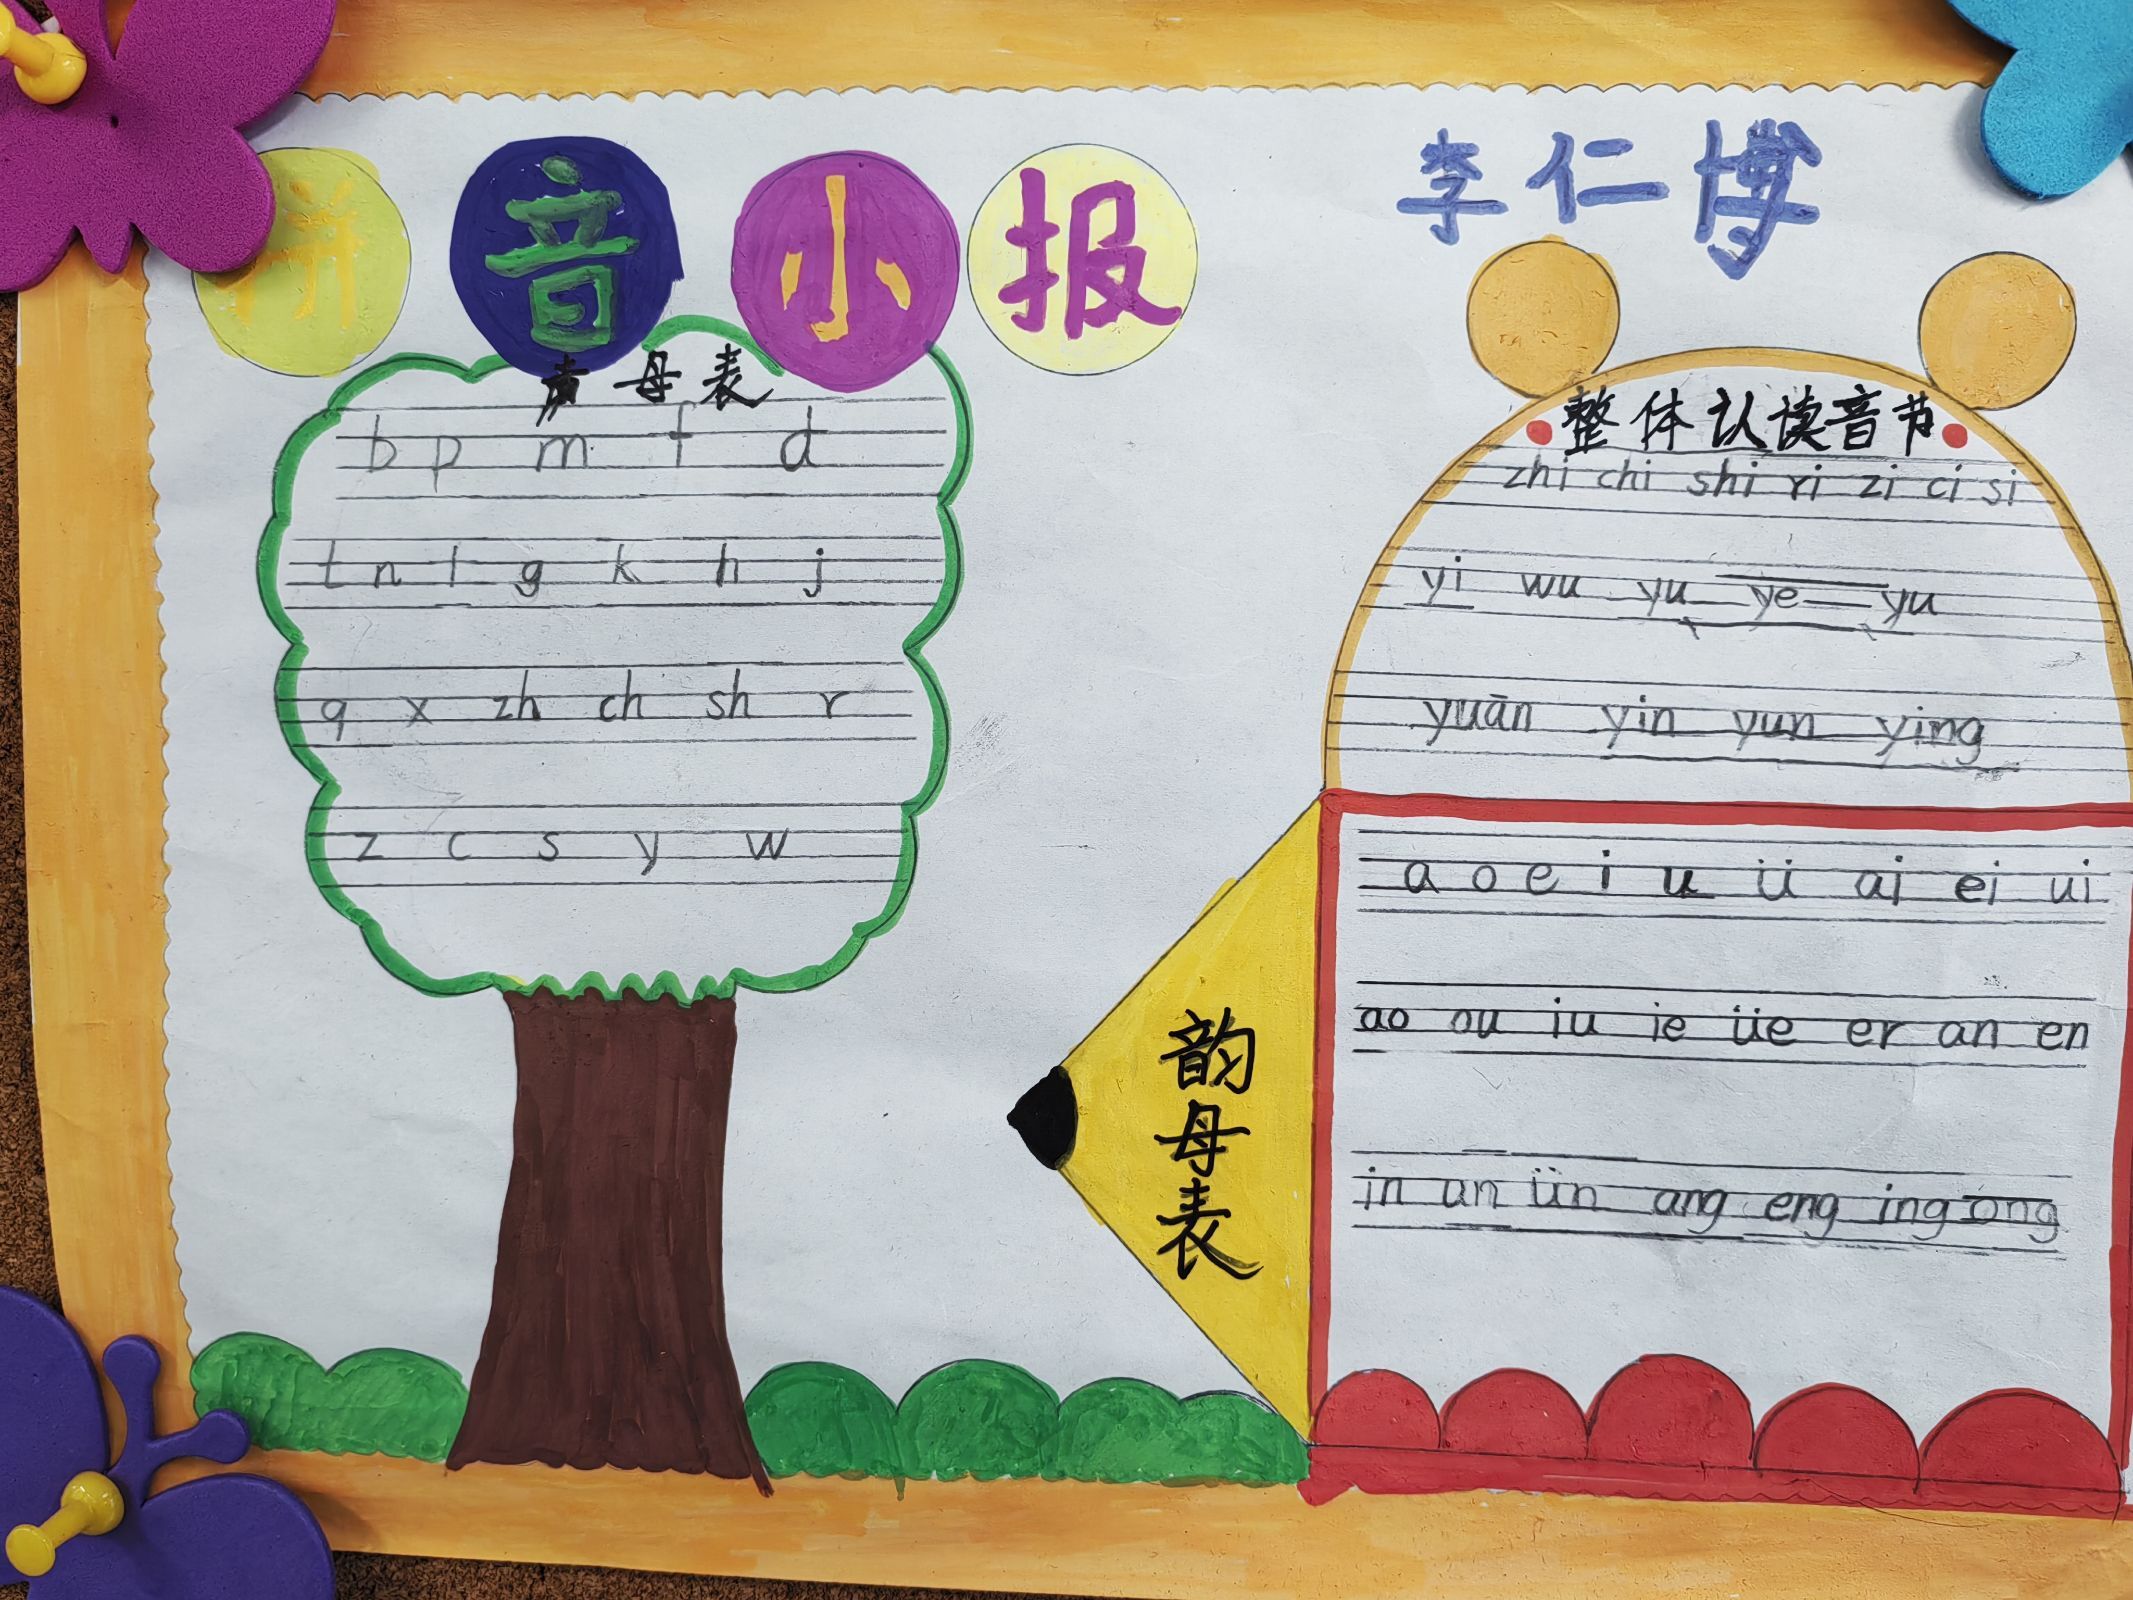 拼音小报
李仁博
声母表
b p m f d
t n l g k h j
q x zh ch sh r
z c s y w
整体认读音节
zhi chi shi ri zi ci si
yi wu yu ye yu
yuān yin yun ying
韵母表
a o e i u ü ai ei ui
ao ou iu ie üe er an en
in un ün ang eng ing ong